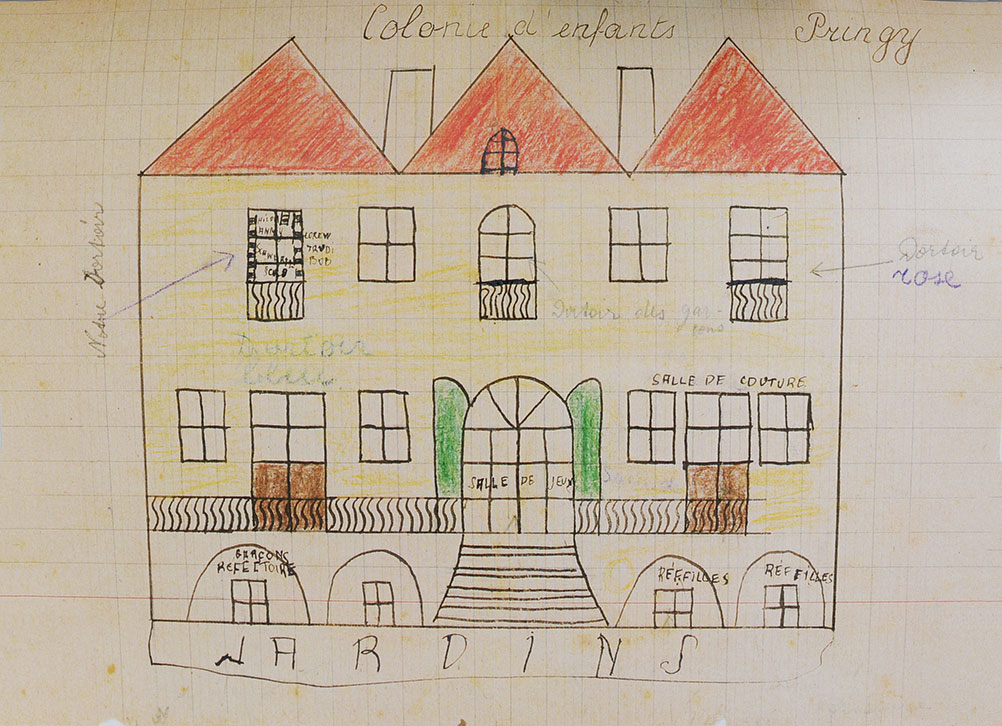 Colonie d'enfants Pringy
Notre Dortoir
Dortoir
rose
TRUDI
Dortoir des gar-
cons
SALLE DE COUTURE
SALLE DE JEUX
GARÇONS
REFECTOIRE
RÉFFILLES
RÉFFILLES
JARDINS